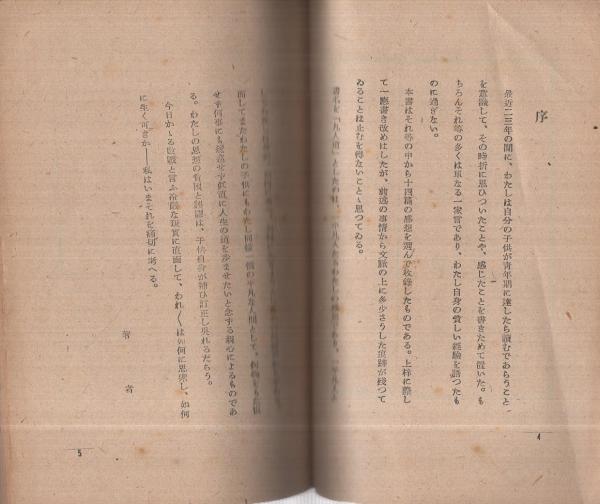 序
最近二三年の間に、わたしは自分の子供が青年期に達したら讀むであらうこと
を意識して、その時折に思ひついたことや、感じたことを書きためて置いた。も
ちろんそれ等の多くは單なる一家言であり、わたし自身の貧しい經驗を語つたも
のに過ぎない。
本書はそれ等の中から十四篇の感想を選んで收錄したものである。上梓に際し
て一應書き改めはしたが、前述の事情から文脈の上に多少さうした痕跡が殘つて
ゐることは止むを得ないことゝ思つてゐる。
書名を「凡人道」としたのは、
面してまたわたしの子供にもわたし同樣一個の平凡な人間として、何物をも
せず何事にも 平凡 に人生の道を步ませたいと念ずる親心によるものであ
る。わたしの思想の 誤謬は、子供自身が補ひ訂正し吳れるだらう。
今日かゝる敗戰と言ふ冷嚴な現實に直面して、われ〱は如何に思索し、如何
に生く可きか――私はいまそれを痛切に考へる。
著者
4
5